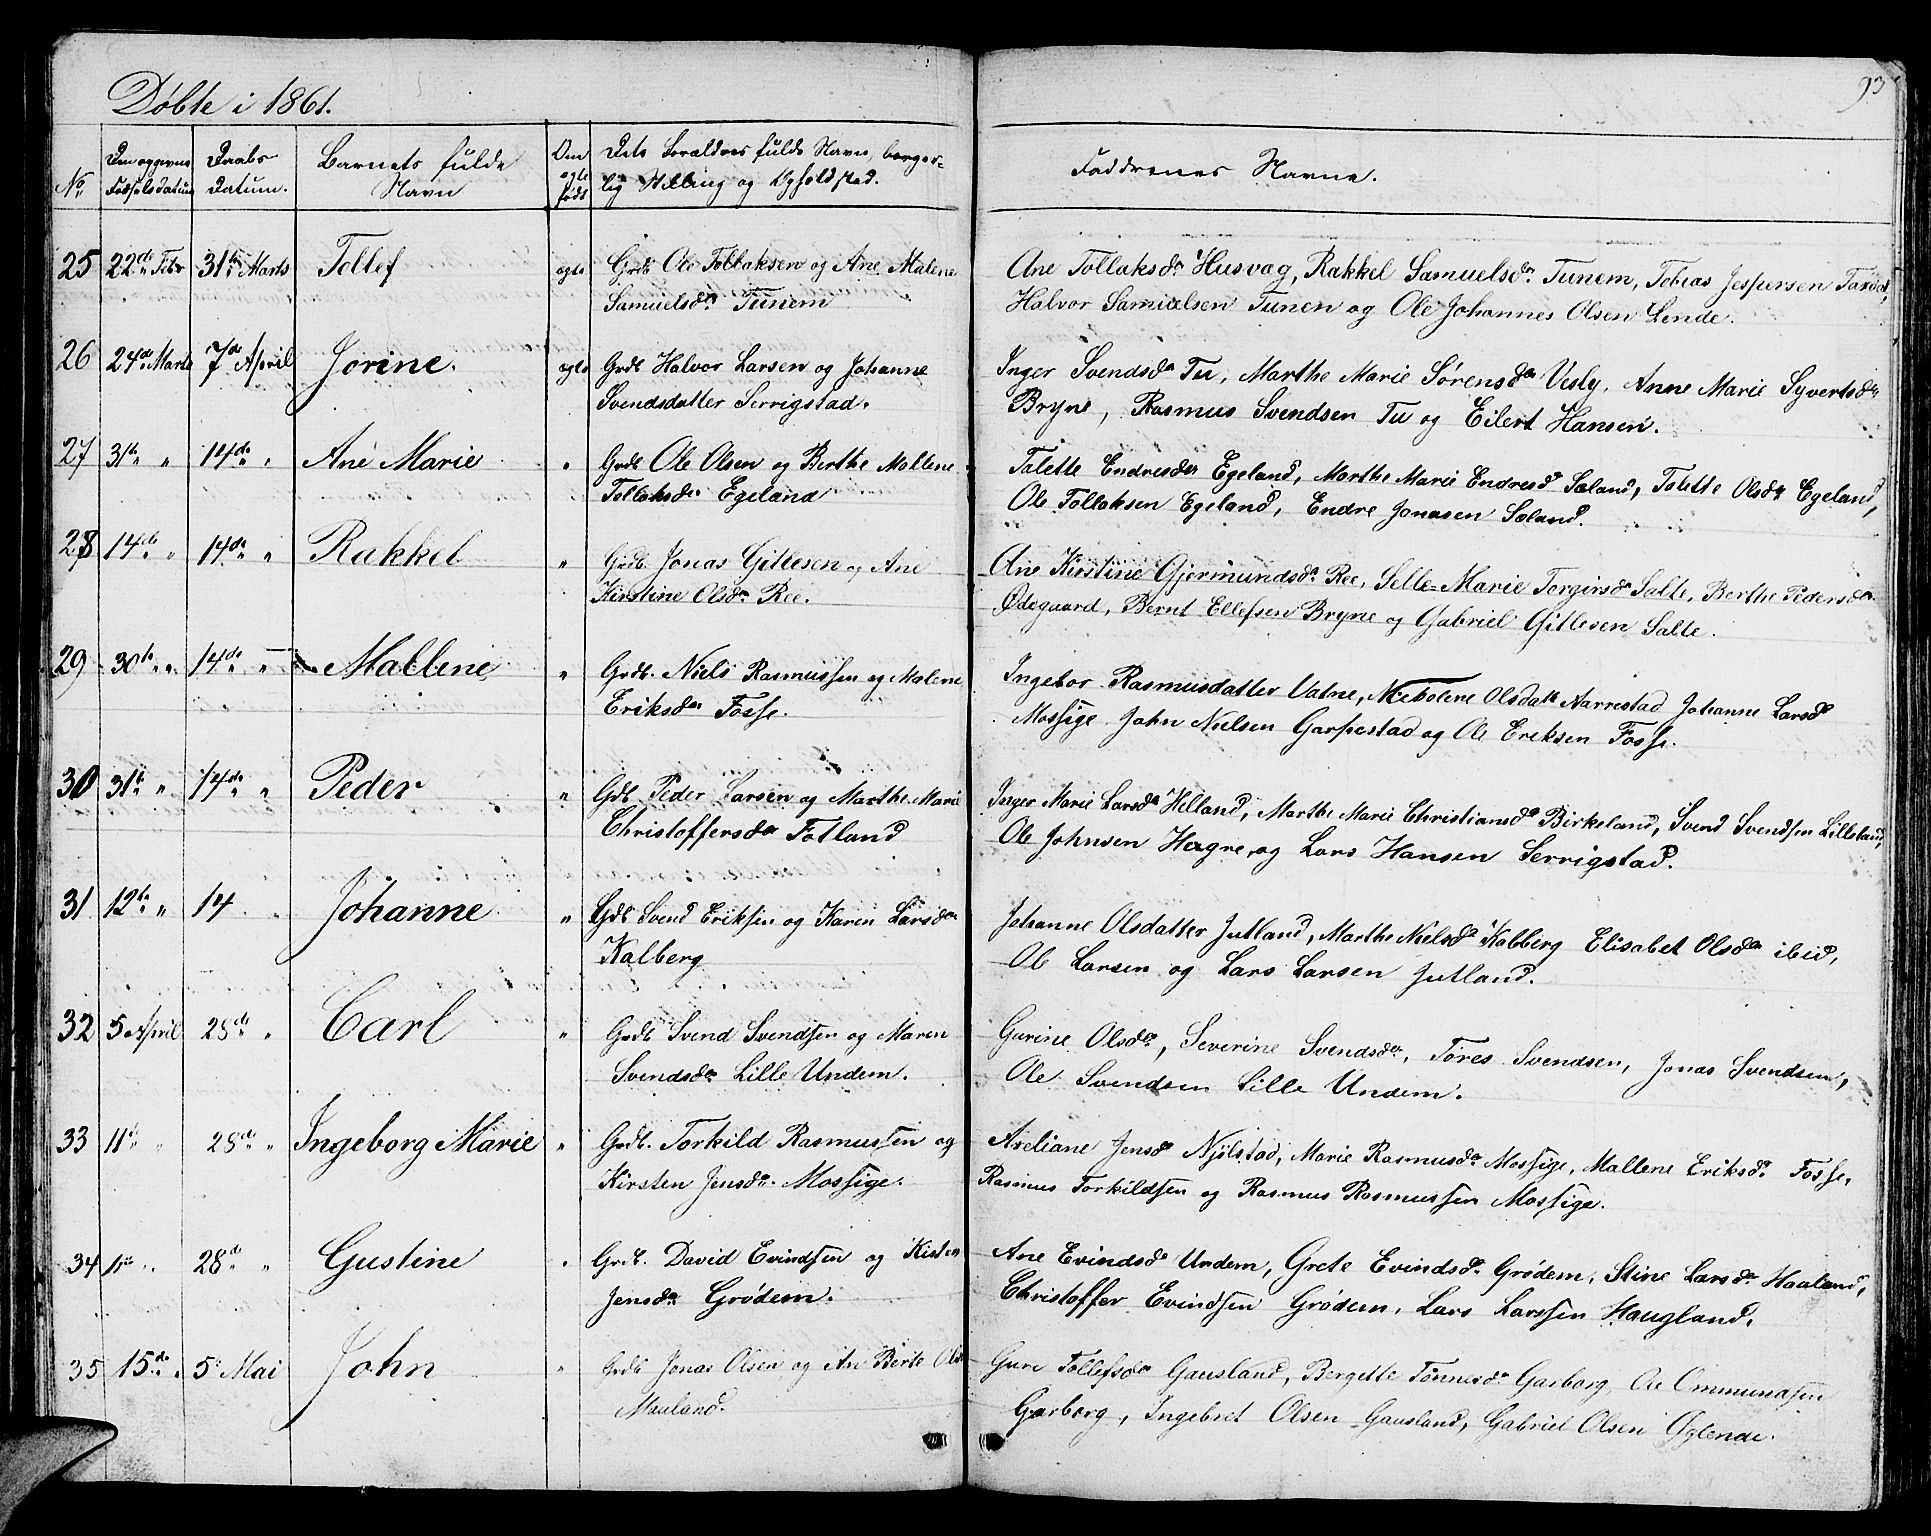 Døbte i 1861.
93
No
Den opgivne Fødselsdatum
Daabs Datum.
Barnets fulde Navn
Om ægte født
Dets Forældres fulde Navn, borger-
lig Stilling og Opholdsted.
Faddrenes Navne.
25 22de Febr 31te Marts Tollef ægte Grdb Ole Tollaksen og Ane Malene
Samuelsdr Tunem
Ane Tollaksdr Husvag, Rakkel Samuelsdr Tunem, Tobias Jespersen
Halvor Samuelsen Tunen og Ole Johannes Olsen Lende.
26 24de Marts 7de April Jorine. ægte Grdb Halvor Larsen og Johanne
Svendsdatter Serrigstad.
Inger Svendsdr Tu, Marthe Marie Sørensdr Vesly, Anne Marie Syvertsdr
Bryne, Rasmus Svendsen Tu og Eilert Hansen.
27 31te " 14de " Ane Marie " Grdb Ole Olsen og Berthe Mallene
Tollaksdr Egeland
Talette Endresdr Egeland, Marthe Marie Endresdr Sæland, Talette Olsdr Egeland,
Ole Tollaksen Egeland, Endre Jonasen Sæland.
28 14de " 14de " Rakkel " Grdb. Jonas Gitlesen og Ane
Kirstine Olsdr Ree.
Ane Kirstine Gjermundsdr Ree, Selle Marie Torgirsdr Salte, Berthe Pedersdr
Ødegaard, Bernt Ellefsen Bryne og Gabriel Gitlesen Salte.
29 30te " " 14de " Mallene " Grdb. Niels Rasmussen og Malene
Eriksdr Fosse.
Ingebor Rasmusdatter Vatne, Nickolene Olsdatr Aarrestad Johanne Larsdr
Mossige John Nielsen Garpestad og Ole Eriksen Fosse.
30 31te " 14de " Peder " Gdb Peder Larsen og Marthe Marie
Christoffersdr Fotland
Inger Marie Larsdr Helland, Marthe Marie Christiansdr Birkeland, Svend Svendsen Lilleland,
Ole Johnsen Høgre, og Lars Hansen Serrigstad.
31 12te " 14 Johanne " Gdb Svend Eriksen og Karen Larsdr
Kalberg
Johanne Olsdatter Jutland, Marthe Nielsdr Kalberg Elisabet Olsdr ibid,
Ole Larsen og Lars Larsen Jutland.
32 5 April 28de " Carl " Grdb Svend Svendsen og Maren
Svendsdr Lille Undem.
Gurine Olsdr, Severine Svendsdr, Tøres Svendsen, Jonas Svendsen,
Ole Svendsen Lille Undem.
33 11te " 28de " Ingeborg Marie " Grdb. Torkild Rasmussen og
Kirsten Jensdr. Mossige.
Axeliane Jensdr Njølstad, Marie Rasmusdr Mossige, Mallene Eriksdr Fosse,
Rasmus Torkildsen og Rasmus Rasmussen Mossige.
34 11te " 28de " Gustine " Grdb. David Evindsen og Kisten
Jensdr Grødem.
Ane Evindsdr Undem, Grete Evindsdr Grødem, Stine Larsdr Haaland,
Christoffer Evindsen Grødem, Lars Larssen Haugland,
35 15de " 5te Mai John " Grdb Jonas Olsen og Ane Berte Olsd
Mauland.
Guri Tollefsdr Gausland, Bergette Tønnesdr Garborg, Ole Ommundsen
Garborg, Ingebret Olsen Gausland, Gabriel Olsen Øglende.